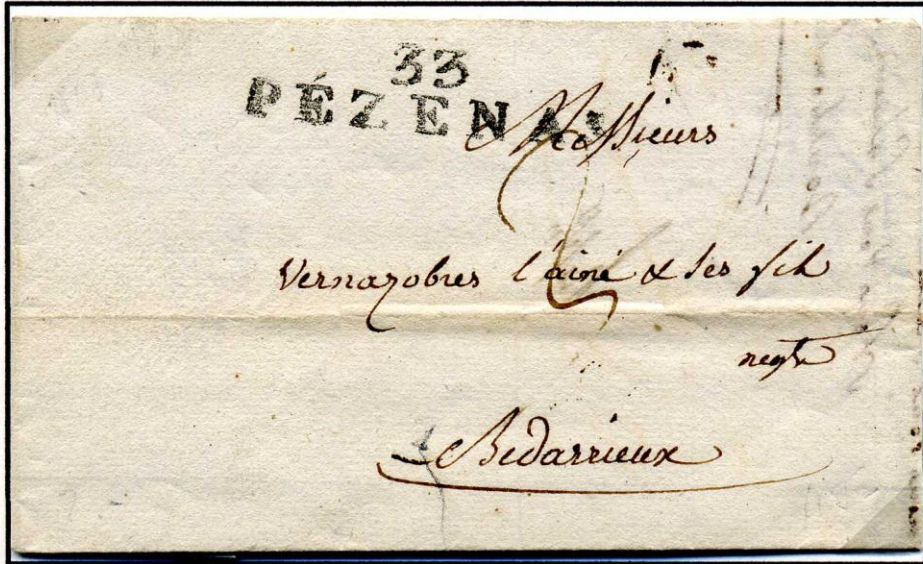 33
PÉZENAS
Messieurs
Vernazobres l'ainé & ses fils
negts
Bedarrieux